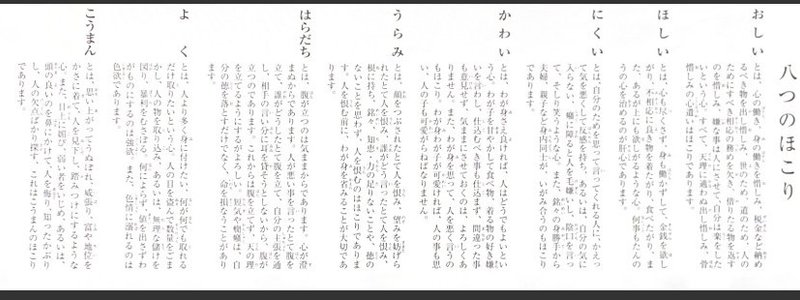 八つのほこり
おしい
とは、心の働き、身の働きを惜しみ、税金など納め
るべき物を出し惜しみ、世のため、道のため、人の
ためにすべき相応の務めを欠き、借りたる物を返す
のを惜しみ、嫌な事は人にさせて自分は楽をした
いという心、すべて、天理に適わぬ出し惜しみ、骨
惜しみの心遣いはほこりであります。
ほしい
とは、心も尽くさず、身も働かずして、金銭を欲し
がり、不相応に良き物を着たがり、食べたがり、ま
た、あるが上にも欲しがるような心、何事もたんの
うの心を治めるのが肝心であります。
にくい
とは、自分のためを思って言ってくれる人に、かえっ
て気を悪くして反感を持ち、あるいは、自分の気に
入らない、癪に障ると人を毛嫌いし、陰口を言っ
て、そしり笑うような心、また、銘々の身勝手から
夫婦、親子など身内同士が、いがみ合うのもほこり
であります。
かわい
とは、わが身さえ良ければ、人はどうでもよいとい
う心、わが子を甘やかして食べ物、着る物の好き嫌
いを言わし、仕込むべき事も仕込まず、間違った事
も意見せず、気ままにさせておくのは、よろしくあ
りません。また、わが身を思って、人を悪く言うの
もほこり。わが身わが子が可愛ければ、人の事も思
い、人の子も可愛がらねばなりません。
うらみ
とは、顔をつぶされたとて人を恨み、望みを妨げら
れたとて人を恨み、誰がどう言ったとて人を恨み、
根に持ち、銘々、知恵・力の足りないことや、徳の
ないことを思わず、人を恨むのはほこりでありま
す。人を恨む前に、わが身を省みることが大切であ
ります。
はらだち
とは、腹が立つのは気ままからであります。心が澄
まぬからであります。人が悪い事を言ったとて腹を
立て、誰がどうしたとて腹を立て、自分の主張を通
し、相手の言い分に耳を貸そうとしないから、腹が
立つのであります。これからは腹を立てず、天の理
を立てるようにするがよろしい。短気や癇癪は、自
分の徳を落とすだけでなく、命を損なうことがあり
ます。
よく
とは、人より多く身に付けたい、何が何でも取れる
だけ取りたいという心、人の目を盗んで数量をごま
かし、人の物を取り込み、あるいは、無理な儲けを
図り、暴利をむさぼる、何によらず、値を出さずわ
がものにするのは強欲、また、色情に溺れるのは
色欲であります。
こうまん
とは、思い上がってうぬぼれ、威張り、富や地位を
かさに着て、人を見下し、踏みつけにするような
心、また、目上に媚び、弱い者をいじめ、あるいは、
頭の良いのを鼻にかけて、人を侮り、知ったかぶり
し、人の欠点ばかり探す、これはこうまんのほこり
であります。